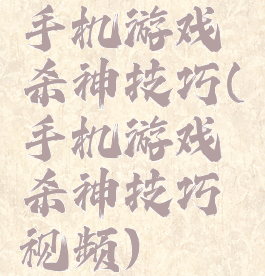 手机游戏
杀神技巧(
手机游戏
杀神技巧
视频)